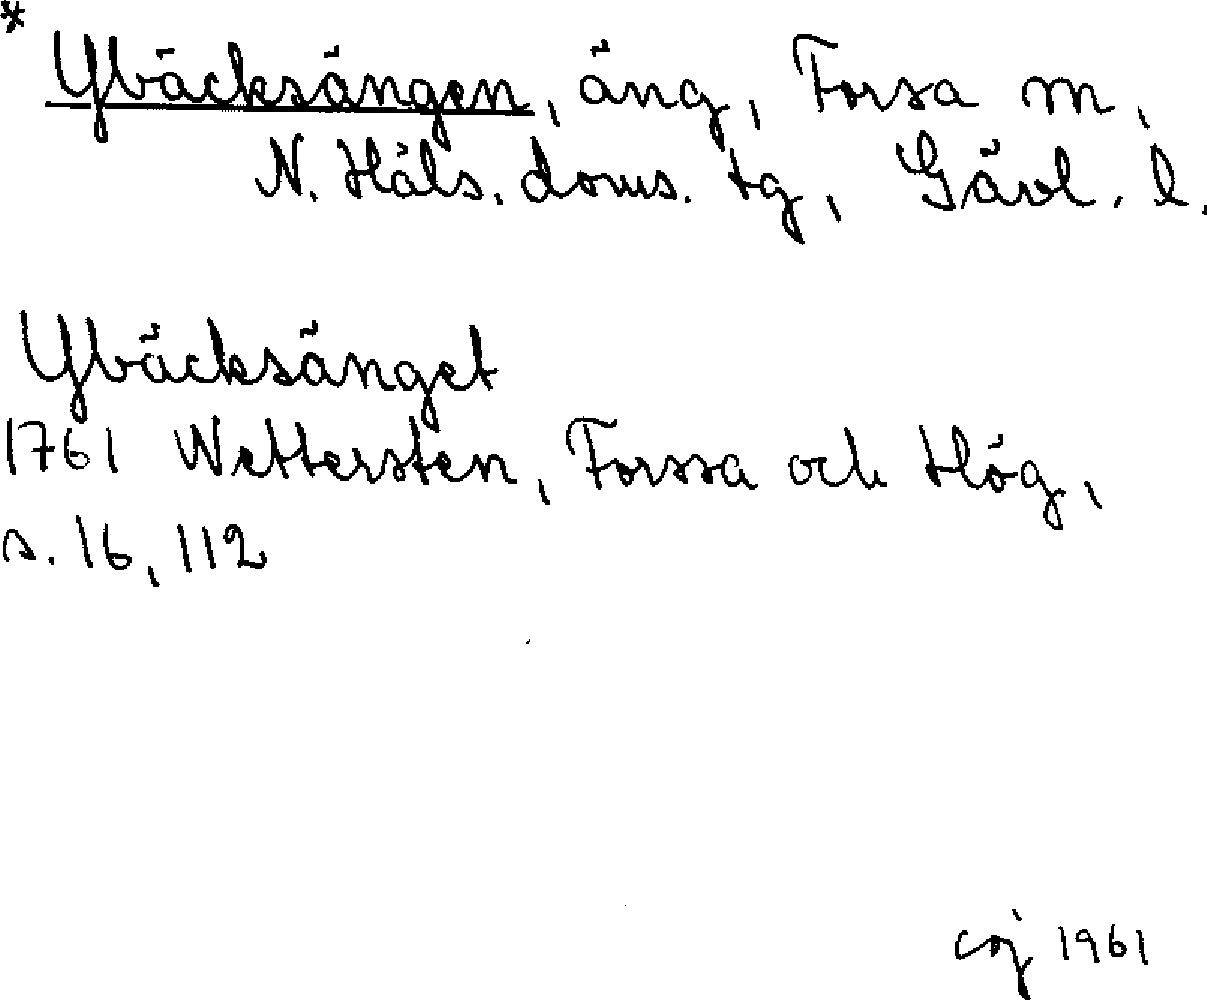 * Ybäcksängen, äng, Forsa sn,
N. Häls. doms. tg, Gävl. l.
Ybäcksänget
1761 Wettersten, Forssa och Hög,
s. 16, 112
coj 1961